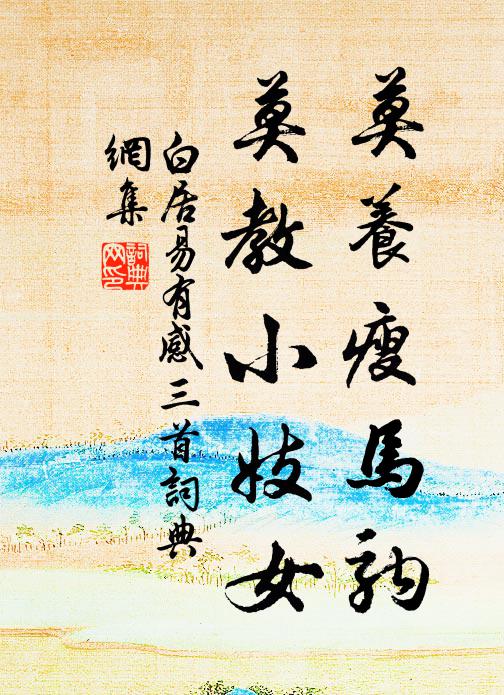 莫養瘦馬駒
莫教小妓女
白居易有感三首詞典
網集
詞典
网印